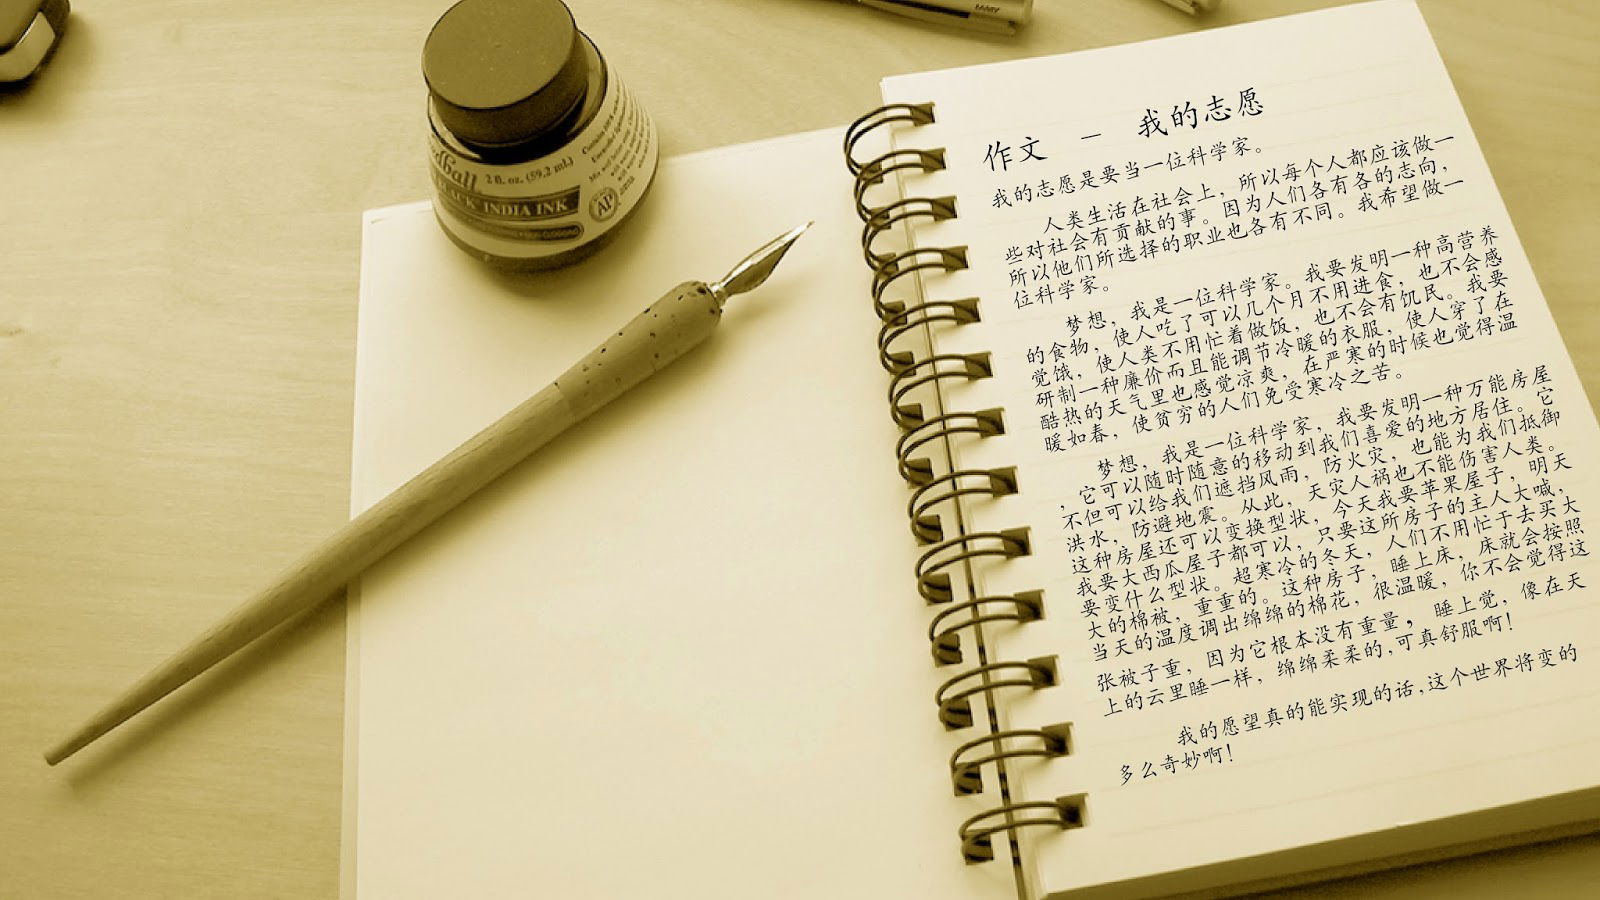 LAMY
2 fl. oz. (59.2 mL)
BLACK INDIA INK
AP
作文 - 我的志愿
我的志愿是要当一位科学家。
人类生活在社会上，所以每个人都应该做一
些对社会有贡献的事。因为人们各有各的志向，
所以他们所选择的职业也各有不同。我希望做一
位科学家。
梦想，我是一位科学家。我要发明一种高营养
的食物，使人吃了可以几个月不用进食，也不会感
觉饿，使人类不用忙着做饭，也不会有饥民。我要
研制一种廉价而且能调节冷暖的衣服，使人穿了在
酷热的天气里也感觉凉爽，在严寒的时候也觉得温
暖如春，使贫穷的人们免受寒冷之苦。
梦想，我是一位科学家，我要发明一种万能房屋
，它可以随时随意的移动到我们喜爱的地方居住。它
不但可以给我们遮挡风雨，防火灾，也能为我们抵御
洪水，防避地震。从此，天灾人祸也不能伤害人类。
这种房屋还可以变换型状，今天我要苹果屋子，明天
我要大西瓜屋子都可以，只要这所房子的主人大喊，
要变什么型状。超寒冷的冬天，人们不用忙于去买大
大的棉被，重重的。这种房子，睡上床，床就会按照
当天的温度调出绵绵的棉花，很温暖，你不会觉得这
张被子重，因为它根本没有重量，睡上觉，像在天
上的云里睡一样，绵绵柔柔的，可真舒服啊！
我的愿望真的能实现的话，这个世界将变的
多么奇妙啊！